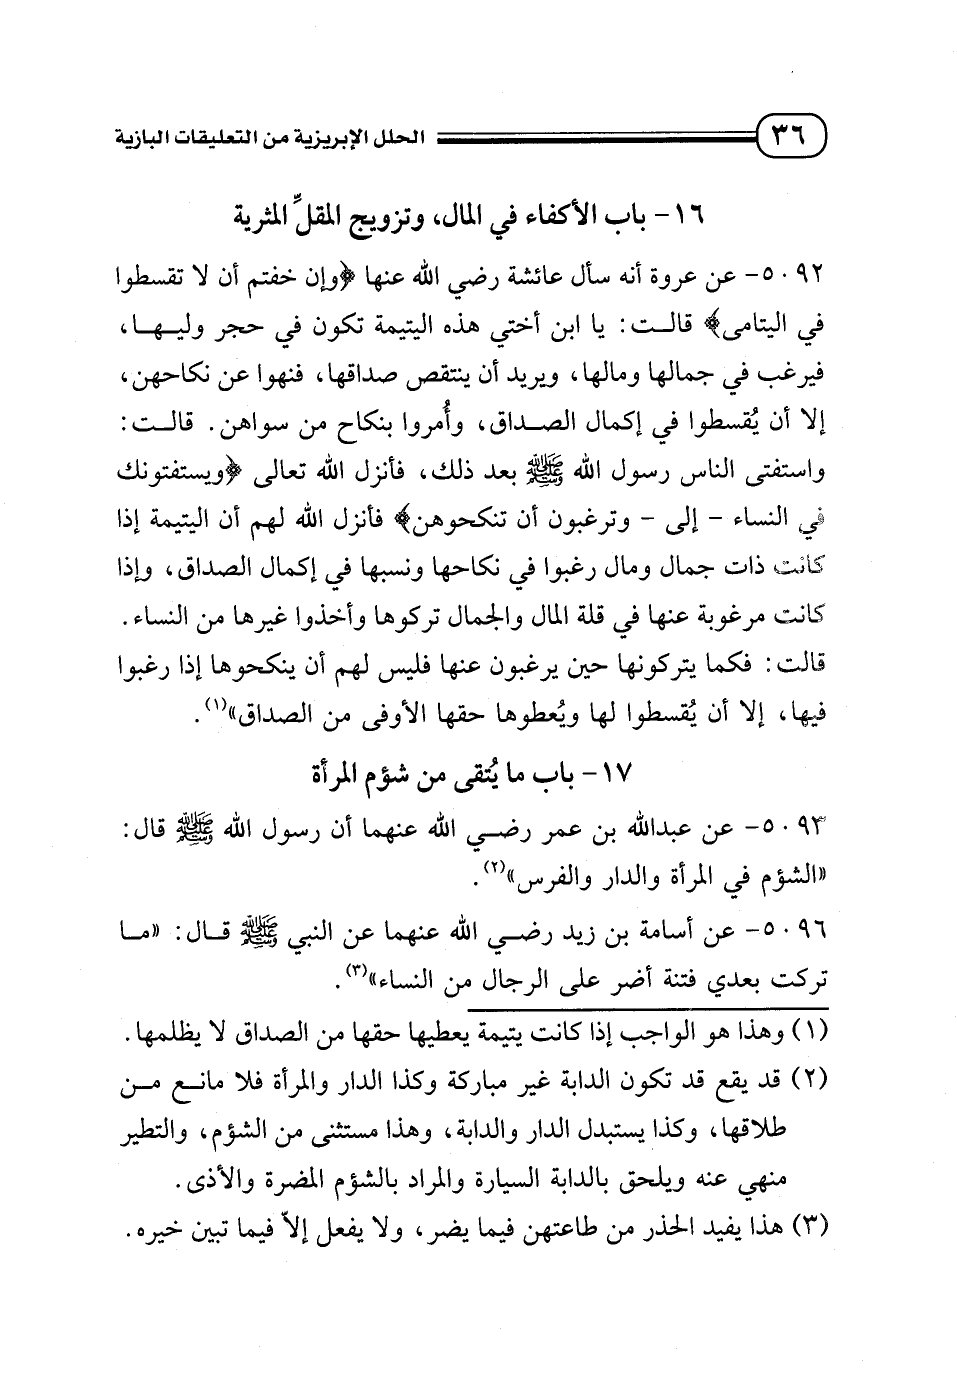 ٣٦ الحلل الإبريزية من التعليقات البازية
١٦- باب الأكفاء في المال، وتزويج المقلِّ المثرية
٥٠٩٢- عن عروة أنه سأل عائشة رضي الله عنها ﴿وإن خفتم أن لا تقسطوا
في اليتامى﴾ قالـت: يا ابن أختي هذه اليتيمة تكون في حجر وليـهـا،
فيرغب في جمالها ومالها، ويريد أن ينتقص صداقها، فنهوا عن نكاحهن،
إلا أن يُقسطوا في إكمال الصـداق، وأُمروا بنكاح من سواهن. قالـت:
واستفتى الناس رسول الله ﷺ بعد ذلك، فأنزل الله تعالى ﴿ويستفتونك
في النساء - إلى - وترغبون أن تنكحوهن﴾ فأنزل الله لهم أن اليتيمة إذا
كانت ذات جمال ومال رغبوا في نكاحها ونسبها في إكمال الصداق، وإذا
كانت مرغوبة عنها في قلة المال والجمال تركوها وأخذوا غيرها من النساء.
قالت: فكما يتركونها حين يرغبون عنها فليس لهم أن ينكحوها إذا رغبوا
فيها، إلا أن يُقسطوا لها ويُعطوها حقها الأوفى من الصداق»(١).
١٧- باب ما يُتقى من شؤم المرأة
٥٠٩٣- عن عبدالله بن عمر رضـي الله عنهما أن رسول الله ﷺ قال:
«الشؤم في المرأة والدار والفرس»(٢).
٥٠٩٦- عن أسامة بن زيد رضـي الله عنهما عن النبي ﷺ قـال: «مـا
تركت بعدي فتنة أضر على الرجال من النساء»(٣).
(١) وهذا هو الواجب إذا كانت يتيمة يعطيها حقها من الصداق لا يظلمها.
(٢) قد يقع قد تكون الدابة غير مباركة وكذا الدار والمرأة فلا مانـع مـن
طلاقها، وكذا يستبدل الدار والدابة، وهذا مستثنى من الشؤم، والتطير
منهي عنه ويلحق بالدابة السيارة والمراد بالشؤم المضرة والأذى.
(٣) هذا يفيد الحذر من طاعتهن فيما يضر، ولا يفعل إلاّ فيما تبين خيره.